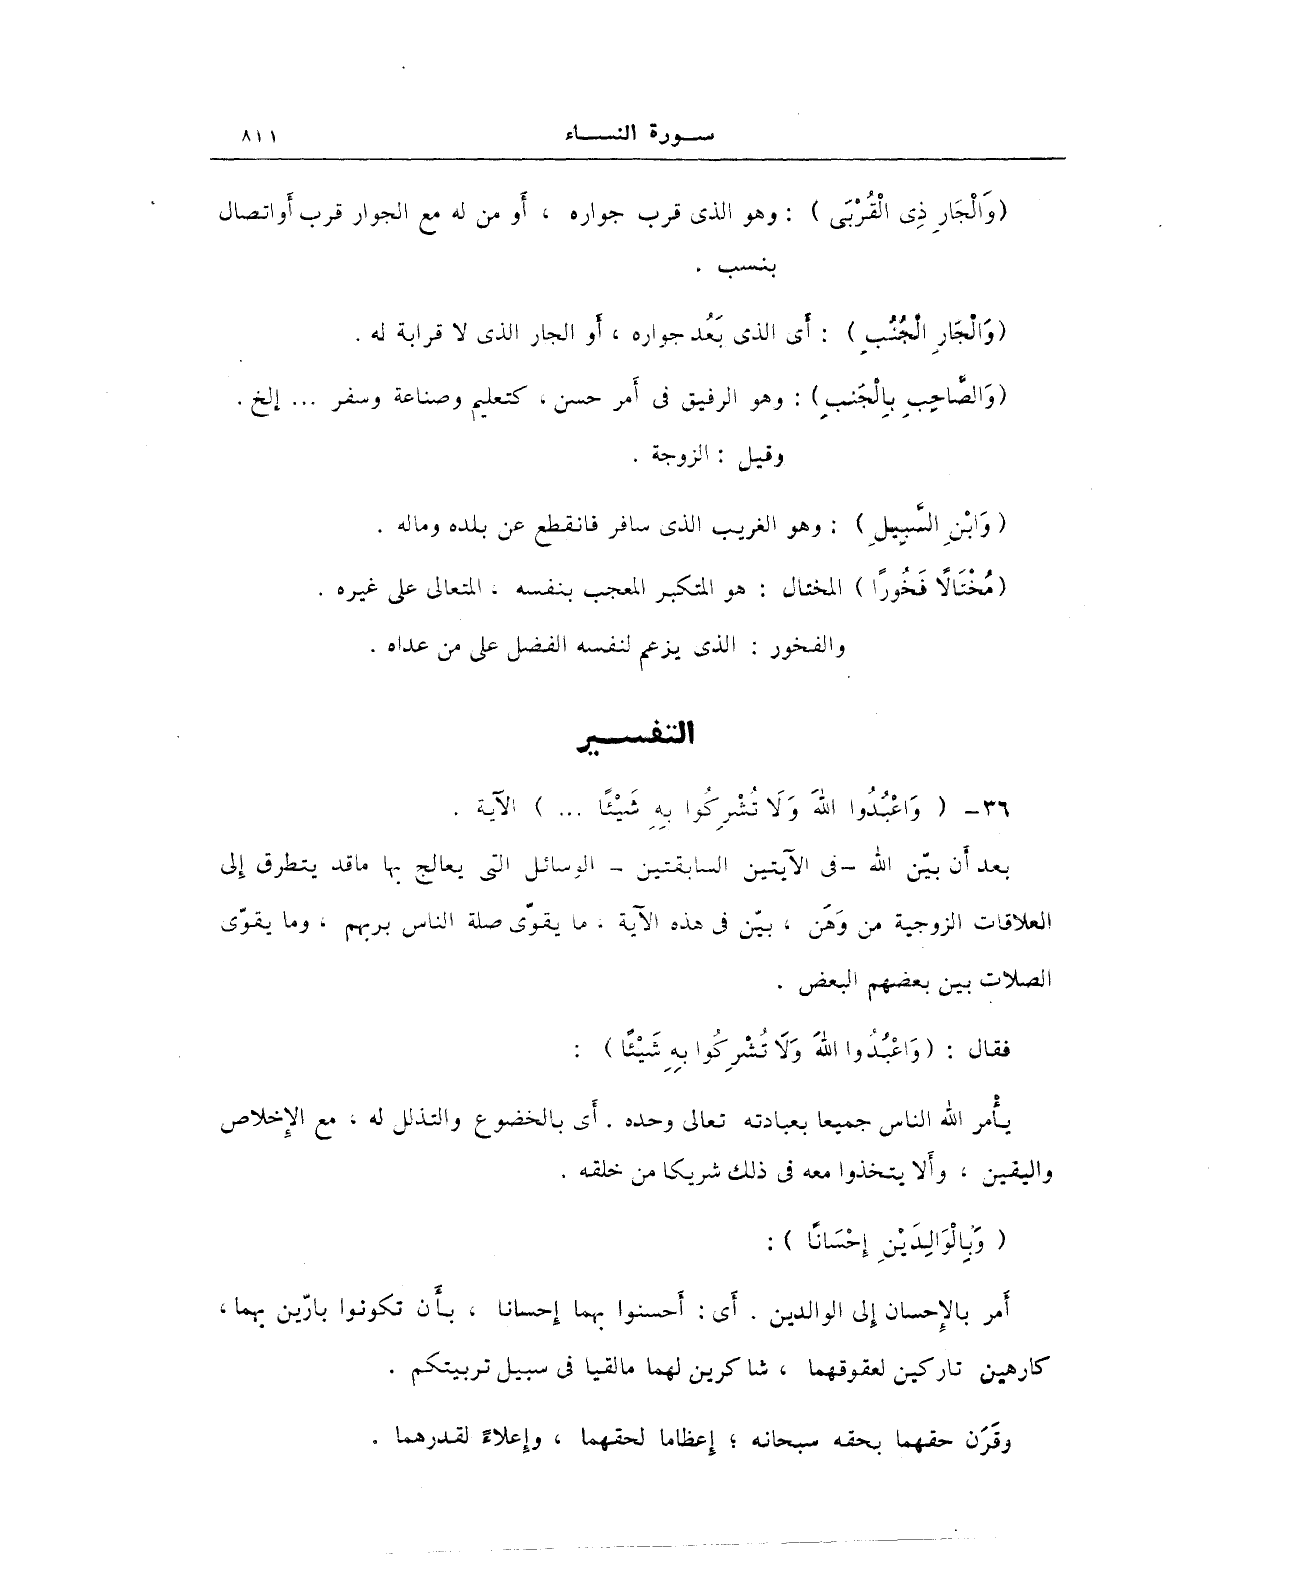 سورة النساء ٨١١
(وَالْجَارِ ذِى الْقُرْبَى) : وهو الذى قرب جواره ، أو من له مع الجوار قرب أواتصال
بنسب .
(وَالْجَارِ الْجُنُبِ) : أى الذى بَعُد جواره ، أو الجار الذى لا قرابة له .
(وَالصَّاحِبِ بِالْجَنبِ) : وهو الرفيق فى أمر حسن ، كتعليم وصناعة وسفر ... إلخ .
وقيل : الزوجة .
(وَابْنِ السَّبِيلِ) : وهو الغريب الذى سافر فانقطع عن بلده وماله .
(مُخْتَالًا فَخُورًا) المختال : هو المتكبر المعجب بنفسه ، المتعالى على غيره .
والفخور : الذى يزعم لنفسه الفضل على من عداه .
التفسير
٣٦- ( وَاعْبُدُوا اللهَ وَلَا تُشْرِكُوا بِهِ شَيْئًا ... ) الآية .
بعد أن بيّن الله -فى الآيتين السابقتين - الوسائل التى يعالج بها ماقد يتطرق إلى
العلاقات الزوجية من وَهَن ، بيّن فى هذه الآية ، ما يقوّى صلة الناس بربهم ، وما يقوّى
الصلات بين بعضهم البعض .
فقال : (وَاعْبُدُوا اللهَ وَلَا تُشْرِكُوا بِهِ شَيْئًا) :
يأْمر الله الناس جميعا بعبادته تعالى وحده . أى بالخضوع والتذلل له ، مع الإخلاص
واليقين ، وألا يتخذوا معه فى ذلك شريكا من خلقه .
( وَبِالْوَالِدَيْنِ إِحْسَانًا ) :
أمر بالإحسان إلى الوالدين . أى : أحسنوا بهما إحسانا ، بأن تكونوا بارّين بهما ،
كارهين تاركين لعقوقهما ، شاكرين لهما مالقيا فى سبيل تربيتكم .
وقَرَن حقهما بحقه سبحانه ؛ إعظاما لحقهما ، وإعلاءً لقدرهما .